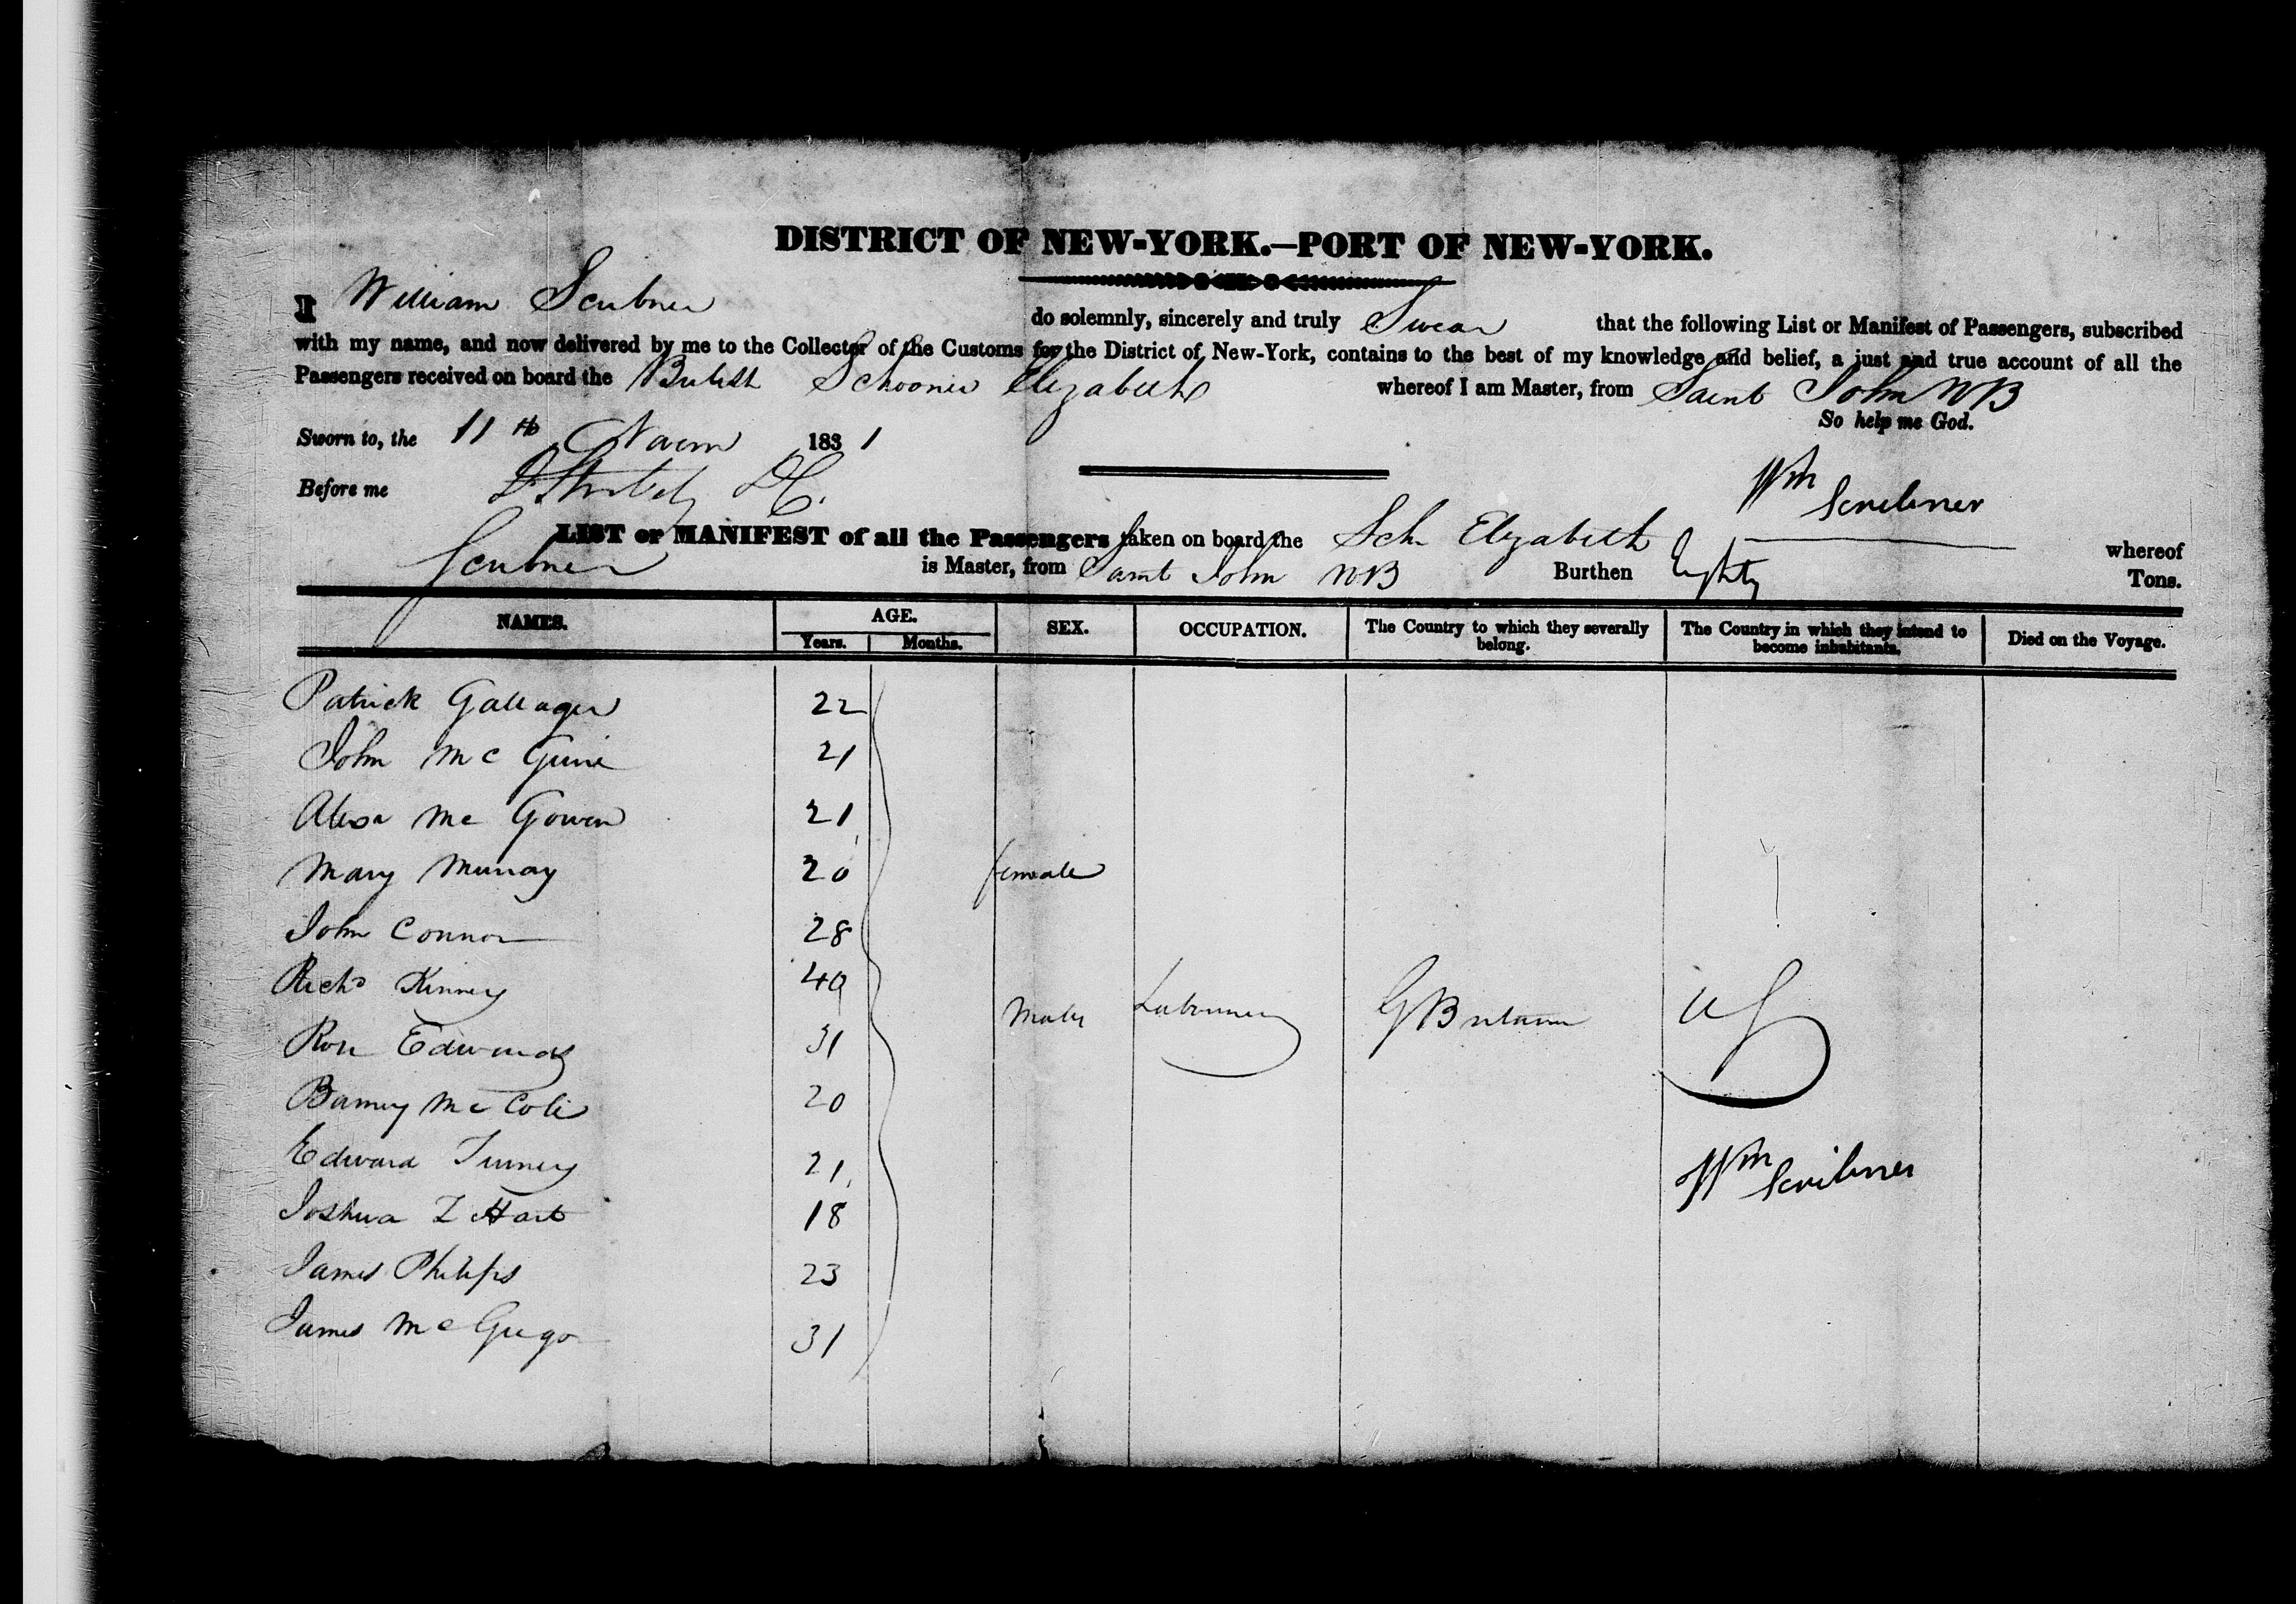 DISTRICT OF NEW-YORK.—PORT OF NEW-YORK.
I William Scribner do solemnly, sincerely and truly Swear that the following List or Manifest of Passengers, subscribed
with my name, and now delivered by me to the Collector of the Customs for the District of New-York, contains to the best of my knowledge and belief, a just and true account of all the
Passengers received on board the British Schooner Elizabeth whereof I am Master, from Saint John NB
So help me God.
Sworn to, the 11th 1831
Before me
Wm Scribner
LIST or MANIFEST of all the Passengers taken on board the Sch Elizabeth whereof
Scribner is Master, from Saint John NB Burthen Eighty Tons.
NAMES. AGE. SEX. OCCUPATION. The Country to which they severally belong. The Country in which they intend to become inhabitants. Died on the Voyage.
Years. Months.
Patrick Gallager 22
John Mc Guire 21
Alexr Mc Gowen 21
Mary Murray 20 female
John Connor 28
Richd Kinney 40
Males Labourers G Britain US
Edwards 31
Barney Mc Cole 20
Edward 21
Joshua Z Hart 18
Wm Scribner
James Philips 23
James Mc Gregor 31